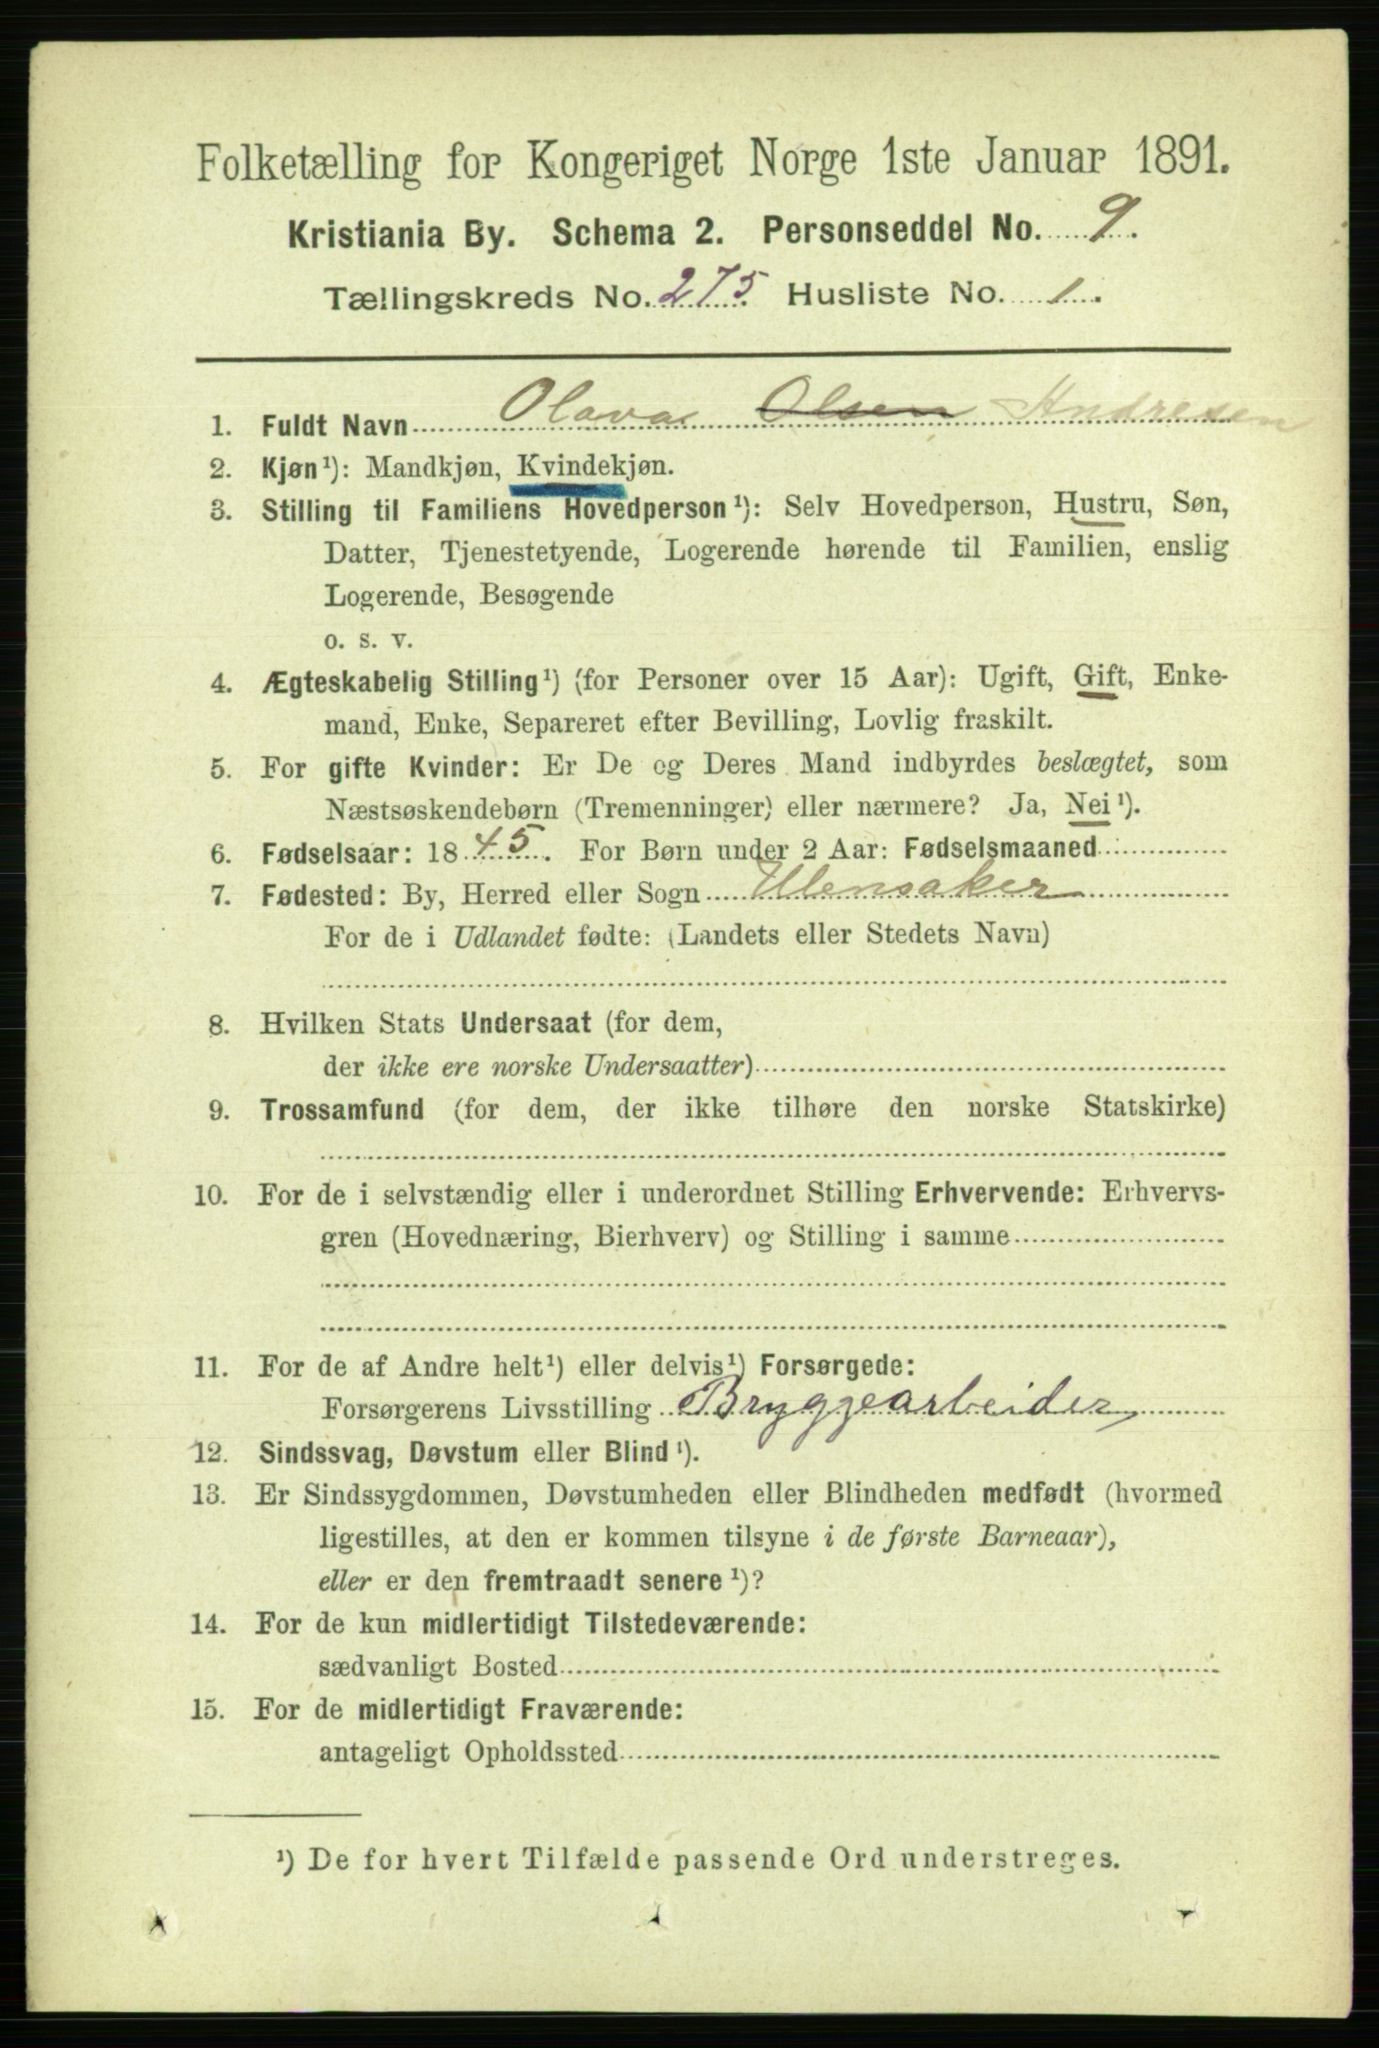 Folketælling for Kongeriget Norge 1ste Januar 1891.
Kristiania By. Schema 2. Personseddel No. 9.
Tællingskreds No. 275. Husliste No. 1.
1. Fuldt Navn Olava Olsen Andresen
2. Kjøn¹): Mandkjøn, Kvindekjøn.
3. Stilling til Familiens Hovedperson¹): Selv Hovedperson, Hustru, Søn,
Datter, Tjenestetyende, Logerende hørende til Familien, enslig
Logerende, Besøgende
o. s. v.
4. Ægteskabelig Stilling¹) (for Personer over 15 Aar): Ugift, Gift, Enke-
mand, Enke, Separeret efter Bevilling, Lovlig fraskilt.
5. For gifte Kvinder: Er De og Deres Mand indbyrdes beslægtet, som
Næstsøskendebørn (Tremenninger) eller nærmere? Ja, Nei¹).
6. Fødselsaar: 1845. For Børn under 2 Aar: Fødselsmaaned
7. Fødested: By, Herred eller Sogn Ulensaker
For de i Udlandet fødte: (Landets eller Stedets Navn)
8. Hvilken Stats Undersaat (for dem,
der ikke ere norske Undersaatter)
9. Trossamfund (for dem, der ikke tilhøre den norske Statskirke)
10. For de i selvstændig eller i underordnet Stilling Erhvervende: Erhvervs-
gren (Hovednæring, Bierhverv) og Stilling i samme
11. For de af Andre helt¹) eller delvis¹) Forsørgede:
Forsørgerens Livsstilling Bryggearbeider
12. Sindssvag, Døvstum eller Blind¹).
13. Er Sindssygdommen, Døvstumheden eller Blindheden medfødt (hvormed
ligestilles, at den er kommen tilsyne i de første Barneaar),
eller er den fremtraadt senere¹)?
14. For de kun midlertidigt Tilstedeværende:
sædvanligt Bosted
15. For de midlertidigt Fraværende:
antageligt Opholdssted
¹) De for hvert Tilfælde passende Ord understreges.